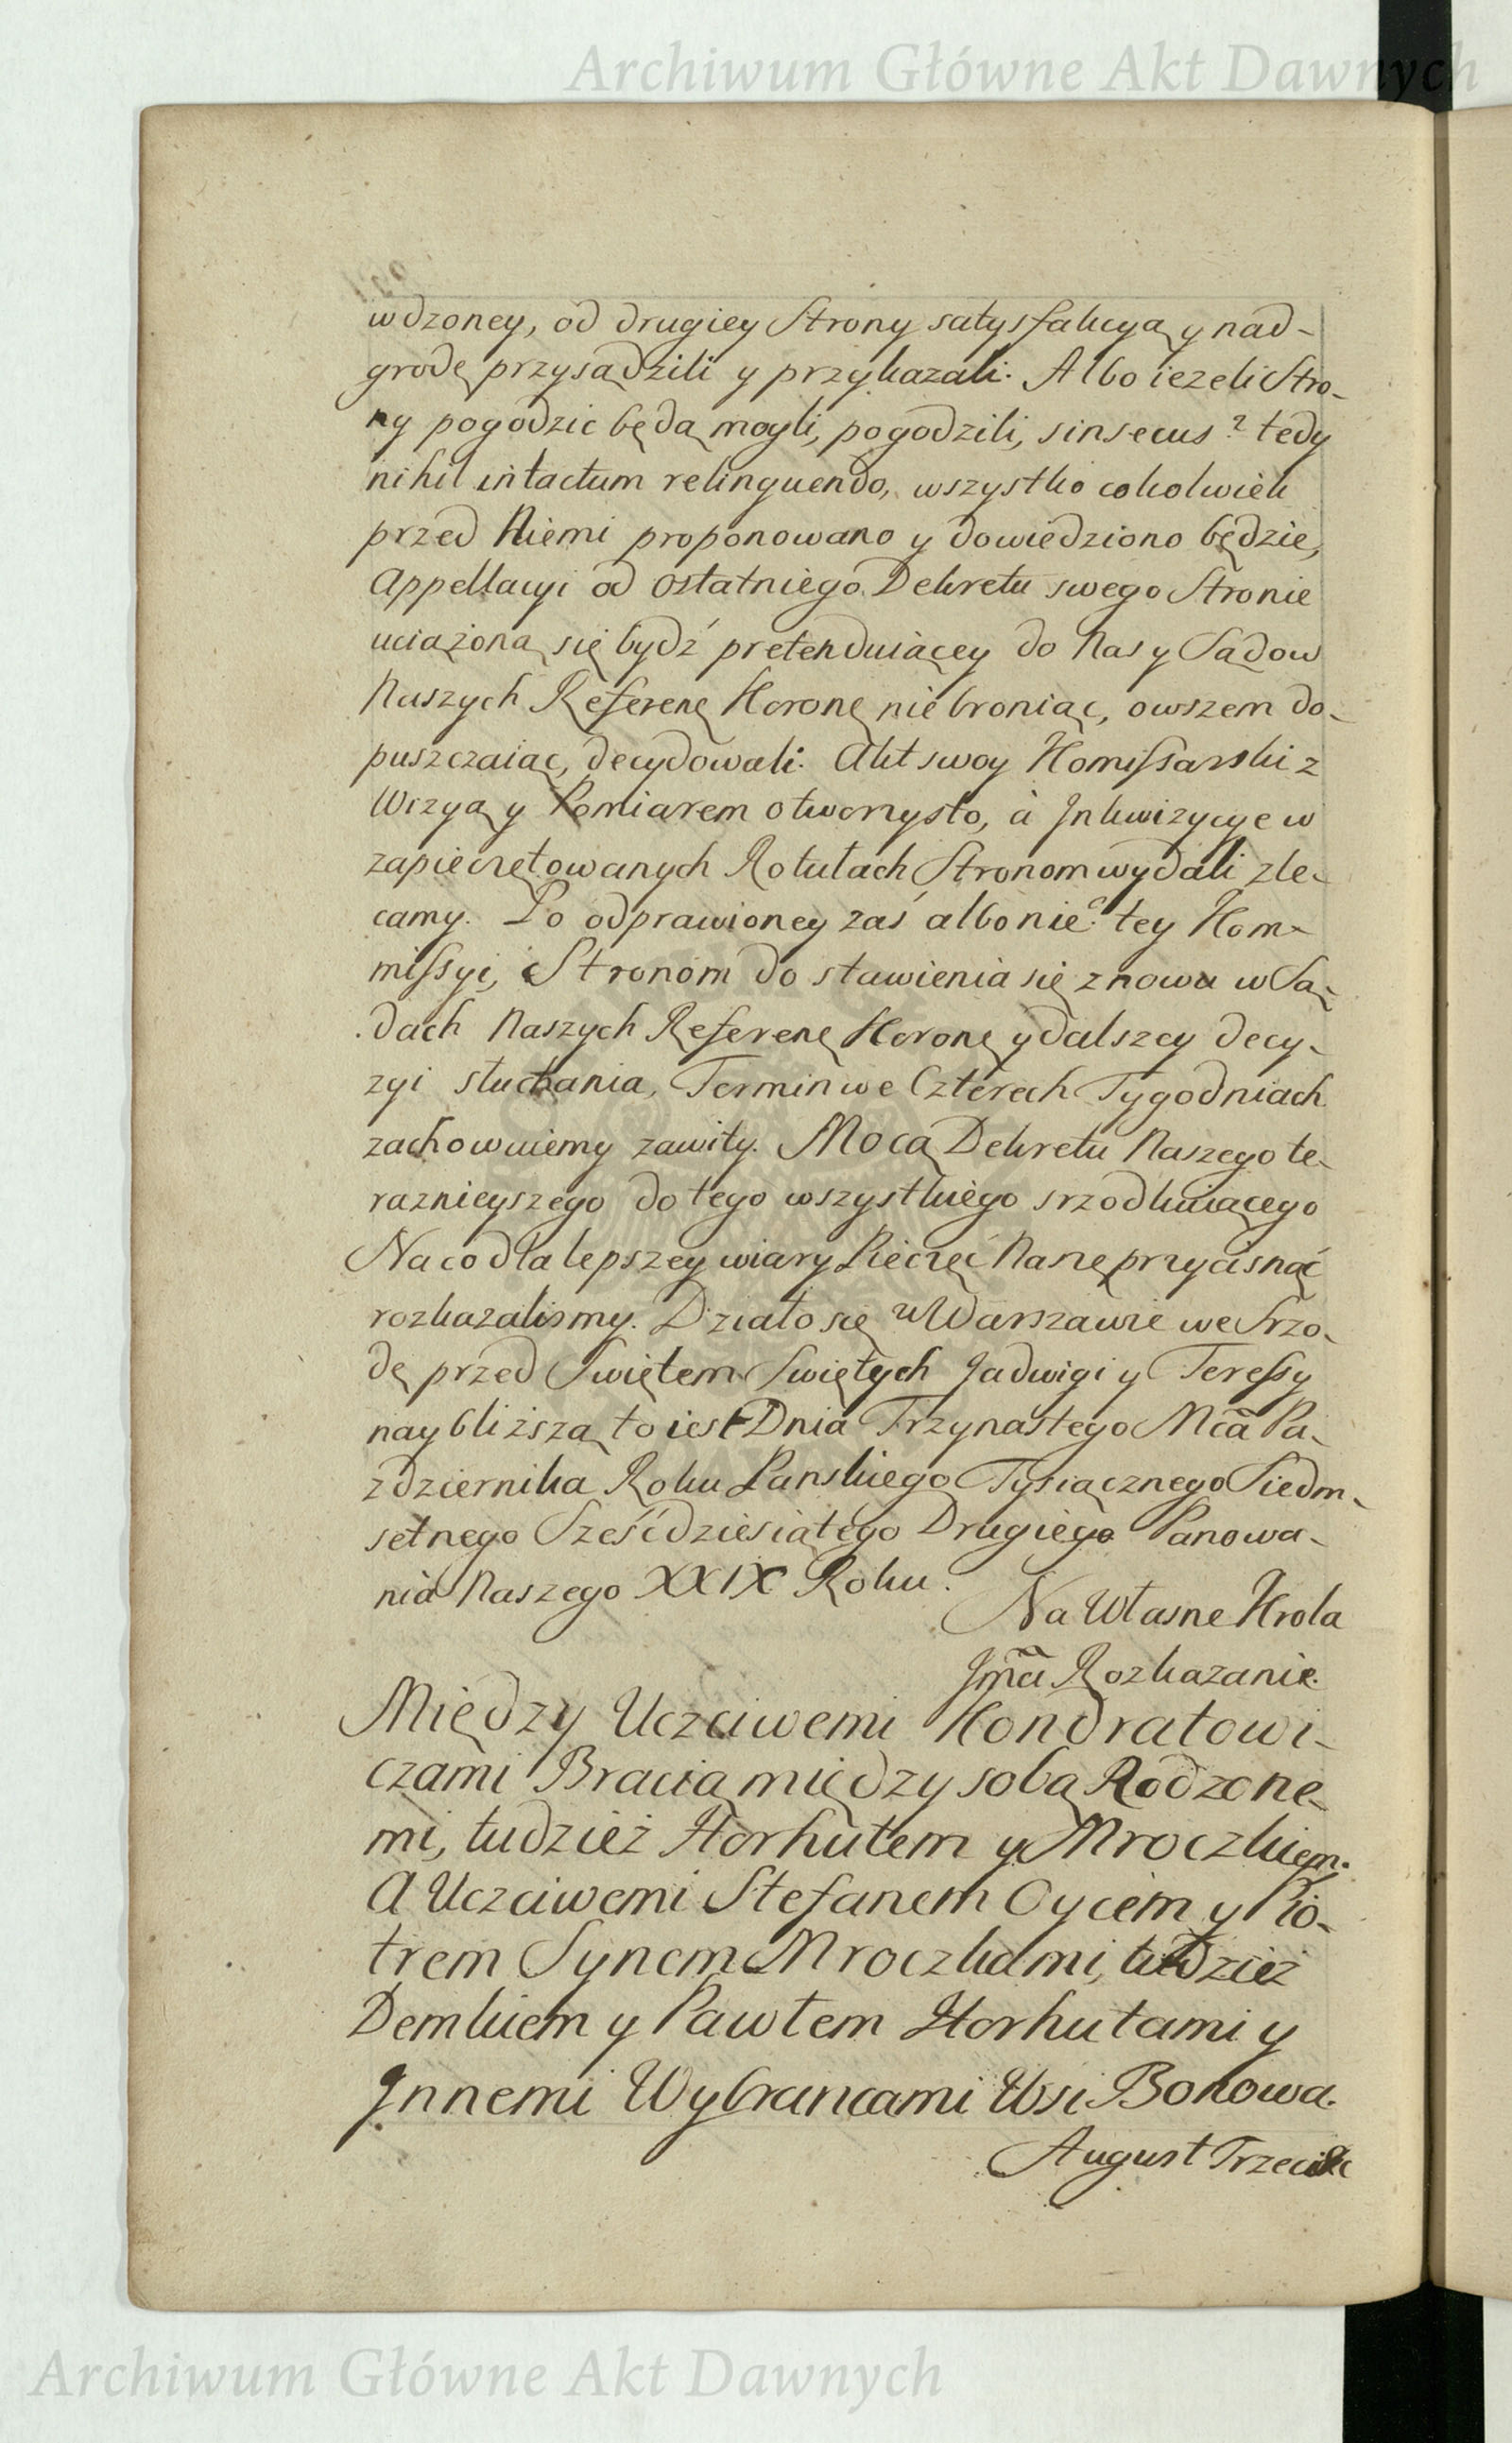 Archiwum Główne Akt Dawnych
wdzoney, od drugiey Strony satysfakcyą y nad-
grodę przysądzili y przykazali. Albo iezeli Stro-
ny pogodzic będą mogli, pogodzili, sinsecus? tedy
nihil intactum relinquendo, wszystko cokolwiek
przed Niemi proponowano y dowiedziono będzie,
Appellacyi od ostatniego Dekretu swego Stronie
uciążoną się bydź pretenduiącey do Nas y Sądow
Naszych Referenę Koronę nie broniąc, owszem do-
puszczaiąc, decydowali. Akt swoy Komissarski z
Wizyą y Pomiarem otworzysto, à Inkwizycye w
zapieczętowanych Rotułach Stronom wydali zle-
camy. Po odprawioney zaś albo nie? tey Kom-
missyi, Stronom do stawienia się znowu w Są-
dach Naszych Referenę Koronę y dalszey decy-
zyi słuchania, Termin we Czterech Tygodniach
zachowuiemy zawity. Mocą Dekretu Naszego te-
raznieyszego do tego wszystkiego srzodkuiącego
Na co dla lepszey wiary Pieczęć Naszę przycisnąć
rozkazalismy. Działo się w Warszawie we Srzo-
dę przed Swiętem Swiętych Jadwigi y Teressy
naybliższą to iest Dnia Trzynastego Mcã Pa-
zdziernika Roku Panskiego Tysiącznego Siedm-
setnego Sześćdziesiątego Drugiego Panowa-
nia Naszego XXIX Roku.
Na Własne Krola
Jmci Rozkazanie.
Między Uczciwemi Kondratowi-
czami Bracią między sobą Rodzone-
mi, tudzież Horhutem y Mroczkiem.
A Uczciwemi Stefanem Oycem y Pio-
trem Synem Mroczkami, tudzież
Demkiem y Pawłem Horhutami y
Innemi Wybrancami Wsi Bonowa.
August Trzeci &c
Archiwum Główne Akt Dawnych